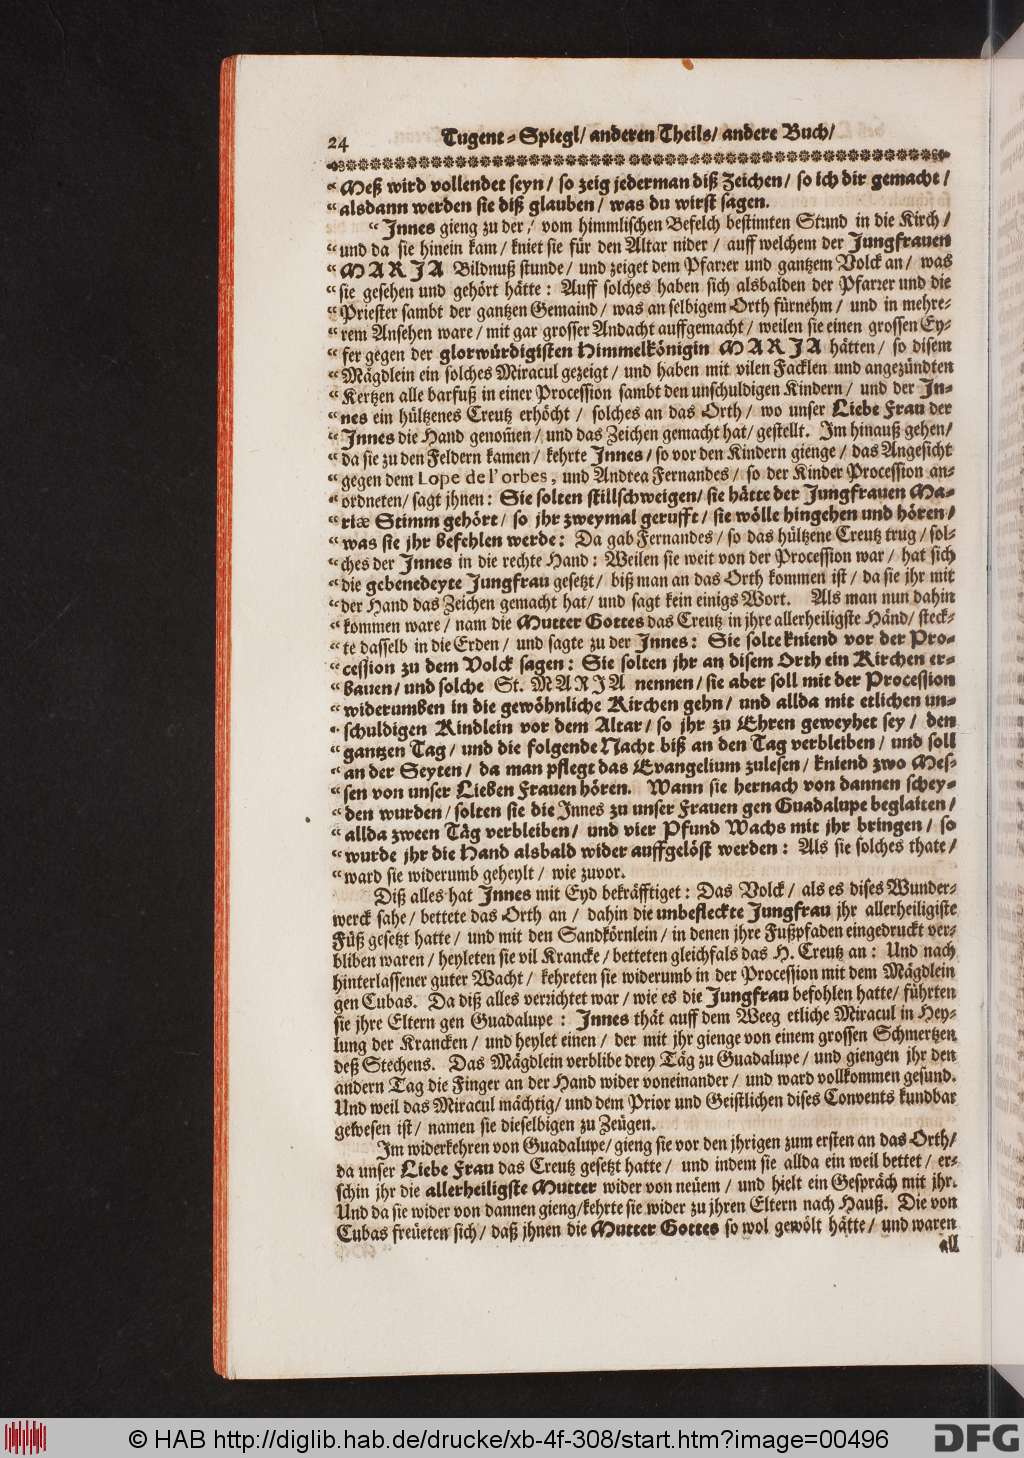 24 Tugent-Spiegl/ anderen Theils/ andere Buch/
“ Meß wird vollendet seyn/ so zeig jederman diß Zeichen/ so ich dir gemacht/
“ alsdann werden sie diß glauben/ was du wirst sagen.
“ Jnnes gieng zu der/ vom himmlischen Befelch bestimten Stund in die Kirch/
“ und da sie hinein kam/ kniet sie für den Altar nider/ auff welchem der Jungfrauen
“ MARJA Bildnuß stunde/ und zeiget dem Pfarrer und gantzem Volck an/ was
“ sie gesehen und gehört hätte: Auff solches haben sich alsbalden der Pfarrer und die
“ Priester sambt der gantzen Gemaind/ was an selbigem Orth fürnehm/ und in mehre-
“ rem Ansehen ware/ mit gar grosser Andacht auffgemacht/ weilen sie einen grossen Ey-
“ fer gegen der glorwürdigisten Himmelkönigin MARJA hätten/ so disem
“ Mägdlein ein solches Miracul gezeigt/ und haben mit vilen Facklen und angezündten
“ Kertzen alle barfuß in einer Procession sambt den unschuldigen Kindern/ und der Jn-
“ nes ein hültzenes Creutz erhöcht/ solches an das Orth/ wo unser Liebe Frau der
“ Jnnes die Hand genom̃en/ und das Zeichen gemacht hat/ gestellt. Jm hinauß gehen/
“ da sie zu den Feldern kamen/ kehrte Jnnes/ so vor den Kindern gienge/ das Angesicht
“ gegen dem Lope de l'orbes, und Andrea Fernandes/ so der Kinder Procession an-
“ ordneten/ sagt jhnen: Sie solten stillschweigen/ sie hätte der Jungfrauen Ma-
“ riæ Stimm gehört/ so jhr zweymal gerufft/ sie wölle hingehen und hören/
“ was sie jhr befehlen werde: Da gab Fernandes/ so das hültzene Creutz trug/ sol-
“ ches der Jnnes in die rechte Hand: Weilen sie weit von der Procession war/ hat sich
“ die gebenedeyte Jungfrau gesetzt/ biß man an das Orth kommen ist/ da sie jhr mit
“ der Hand das Zeichen gemacht hat/ und sagt kein einigs Wort. Als man nun dahin
“ kommen ware/ nam die Mutter Gottes das Creutz in jhre allerheiligste Händ/ steck-
“ te dasselb in die Erden/ und sagte zu der Jnnes: Sie solte kniend vor der Pro-
“ cession zu dem Volck sagen: Sie solten jhr an disem Orth ein Kirchen er-
“ bauen/ und solche St. MARJA nennen/ sie aber soll mit der Procession
“ widerumben in die gewöhnliche Kirchen gehn/ und allda mit etlichen un-
“ schuldigen Kindlein vor dem Altar/ so jhr zu Ehren geweyhet sey/ den
“ gantzen Tag/ und die folgende Nacht biß an den Tag verbleiben/ und soll
“ an der Seyten/ da man pflegt das Evangelium zulesen/ kniend zwo Mes-
“ sen von unser Lieben Frauen hören. Wann sie hernach von dannen schey-
“ den wurden/ solten sie die Jnnes zu unser Frauen gen Guadalupe beglaiten/
“ allda zween Täg verbleiben/ und vier Pfund Wachs mit jhr bringen/ so
“ wurde jhr die Hand alsbald wider auffgelöst werden: Als sie solches thate/
“ ward sie widerumb geheylt/ wie zuvor.
Diß alles hat Jnnes mit Eyd bekräfftiget: Das Volck/ als es dises Wunder-
werck sahe/ bettete das Orth an/ dahin die unbefleckte Jungfrau jhr allerheiligiste
Füß gesetzt hatte/ und mit den Sandkörnlein/ in denen jhre Fußpfaden eingedruckt ver-
bliben waren/ heyleten sie vil Krancke/ betteten gleichfals das H. Creutz an: Und nach
hinterlassener guter Wacht/ kehreten sie widerumb in der Procession mit dem Mägdlein
gen Cubas. Da diß alles verrichtet war/ wie es die Jungfrau befohlen hatte/ führten
sie jhre Eltern gen Guadalupe: Jnnes thät auff dem Weeg etliche Miracul in Hey-
lung der Krancken/ und heylet einen/ der mit jhr gienge von einem grossen Schmertzen
deß Stechens. Das Mägdlein verblibe drey Täg zu Guadalupe/ und giengen jhr den
andern Tag die Finger an der Hand wider voneinander/ und ward vollkommen gesund.
Und weil das Miracul mächtig/ und dem Prior und Geistlichen dises Convents kundbar
gewesen ist/ namen sie dieselbigen zu Zeügen.
Jm widerkehren von Guadalupe/ gieng sie vor den jhrigen zum ersten an das Orth/
da unser Liebe Frau das Creutz gesetzt hatte/ und indem sie allda ein weil bettet/ er-
schin jhr die allerheiligste Mutter wider von neüem/ und hielt ein Gespräch mit jhr.
Und da sie wider von dannen gieng/ kehrte sie wider zu jhren Eltern nach Hauß. Die von
Cubas freüeten sich/ daß jhnen die Mutter Gottes so wol gewölt hätte/ und waren
all
© HAB http://diglib.hab.de/drucke/xb-4f-308/start.htm?image=00496
DFG